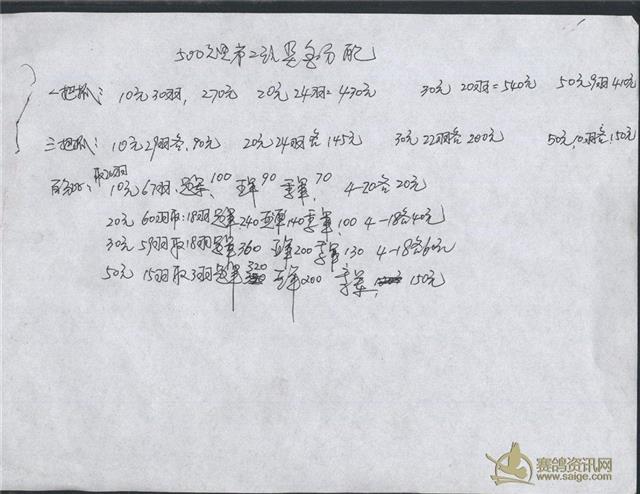 500元里第2站奖金分配
一把抓: 10元30羽, 270元 20元24羽=430元 30元20羽=540元 50元9羽410元
三把抓: 10元29羽各, 90元 20元24羽各145元 30元22羽各200元 50元10羽各150元
取20羽
10元67羽 冠军100 亚军90 季军70 4-20各20元
20元 60羽取18羽冠军240亚军140季军100 4-18各40元
30元 59羽取18羽冠军360 亚军200季军130 4-18各60元
50元 15羽取3羽冠军320 亚军200 季军 150元
赛鸽资讯网
www.saige.com